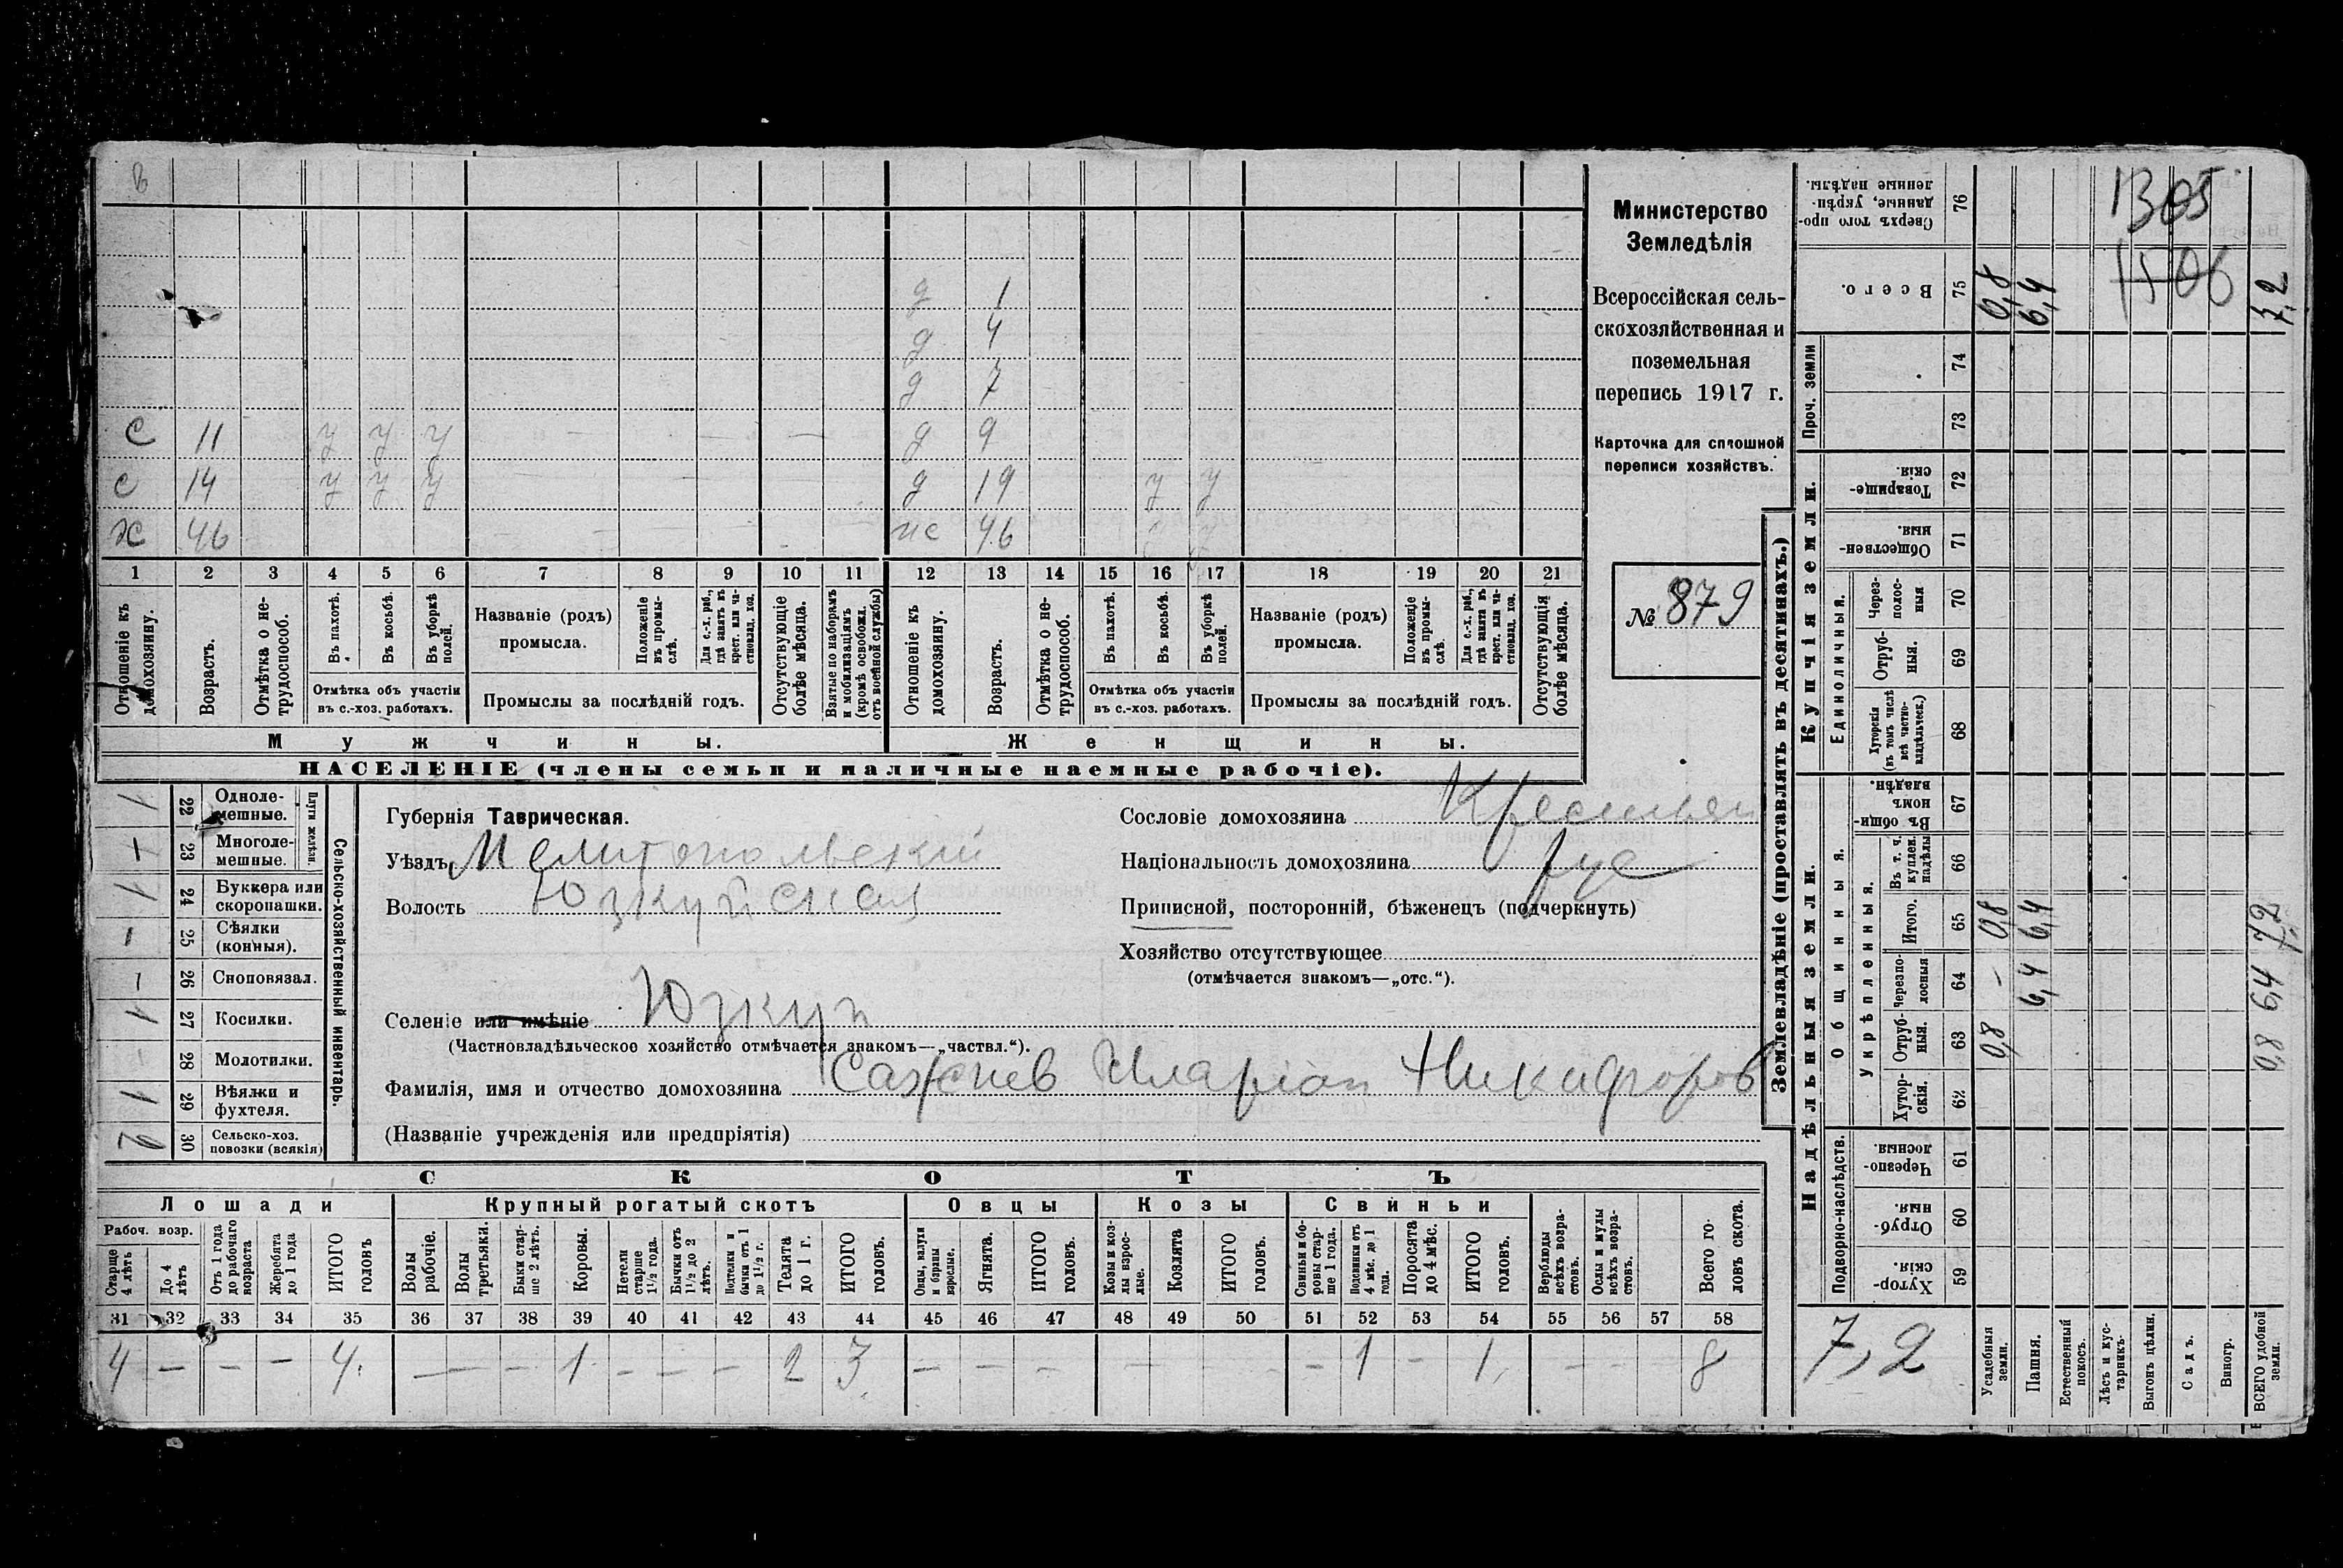 в
д 1
д 4
д 7
с 11 у у у — — — д 9
с 14 у у у д 19 у у
х 46 — — — — же 46 у
1 2 3 4 5 6 7 8 9 10 11 12 13 14 15 16 17 18 19 20 21
Отношеніе къ домохозяину.
Возрастъ.
Отмѣтка о нетрудоспособ.
Въ пахотѣ.
Въ косьбѣ.
Въ уборкѣ полей.
Отмѣтка объ участіи въ с.-хоз. работахъ.
Названіе (родъ) промысла.
Положеніе въ промыслѣ.
Для с.-х. раб., гдѣ занятъ въ крест. или частновлад. хоз.
Промыслы за послѣдній годъ.
Отсутствующіе болѣе мѣсяца.
Взятые по наборамъ и мобилизаціямъ (кромѣ освобожд. отъ военной службы)
Отношеніе къ домохозяину.
Возрастъ.
Отмѣтка о нетрудоспособ.
Въ пахотѣ.
Въ косьбѣ.
Въ уборкѣ полей.
Отмѣтка объ участіи въ с.-хоз. работахъ.
Названіе (родъ) промысла.
Положеніе въ промыслѣ.
Для с.-х. раб., гдѣ занята въ крест. или частновлад. хоз.
Промыслы за послѣдній годъ.
Отсутствующія болѣе мѣсяца.
Мужчины. Женщины.
НАСЕЛЕНІЕ (члены семьи и наличные наемные рабочіе).
Министерство
Земледѣлія
Всероссійская сель-
скохозяйственная и
поземельная
перепись 1917 г.
Карточка для сплошной
переписи хозяйствъ.
№ 879
Сельско-хозяйственный инвентарь.
Плуги желѣзн.
1 22 Однолемешные.
1 23 Многолемешные.
1 24 Буккера или скоропашки.
1 25 Сѣялки (конныя).
— 26 Сноповязал.
1 27 Косилки.
— 28 Молотилки.
1 29 Вѣялки и фухтеля.
2 30 Сельско-хоз. повозки (всякія)
Губернія Таврическая.
Уѣздъ Мелитопольскій
Волость Юзкуйская
Селеніе или имѣніе Юзкуи
(Частновладѣльческое хозяйство отмѣчается знакомъ—„частвл.“).
Фамилія, имя и отчество домохозяина Иларіон Никифоров
(Названіе учрежденія или предпріятія)
Сословіе домохозяина Крестьян
Національность домохозяина рус
Приписной, посторонній, бѣженецъ (подчеркнуть)
Хозяйство отсутствующее
(отмѣчается знакомъ—„отс.“).
СКОТЪ
Лошади Крупный рогатый скотъ Овцы Козы Свиньи
Рабоч. возр.
Старше 4 лѣтъ
До 4 лѣтъ
Отъ 1 года до рабочаго возраста
Жеребята до 1 года
ИТОГО головъ
Волы рабочіе.
Волы третьяки.
Быки старше 2 лѣтъ.
Коровы.
Нетели старше 1½ года.
Бычки отъ 1½ до 2 лѣтъ.
Подтелки и бычки отъ 1 до 1½ г.
Телята до 1 г.
ИТОГО головъ.
Овцы, валухи и бараны взрослые.
Ягнята.
ИТОГО головъ.
Козы и козлы взрослые.
Козлята
ИТОГО головъ.
Свиньи и боровы старше 1 года.
Подсвинки отъ 4 мѣс. до 1 года.
Поросята до 4 мѣс.
ИТОГО головъ.
Верблюды всѣхъ возрастовъ.
Ослы и мулы всѣхъ возрастовъ.
Всего головъ скота.
31 32 33 34 35 36 37 38 39 40 41 42 43 44 45 46 47 48 49 50 51 52 53 54 55 56 57 58
4 — — — 4. — — 1 — — — 2 3 — — — — — — 1 — 1 — — 8
Землевладѣніе (проставлять въ десятинахъ.)
Надѣльныя земли. Купчія земли. Проч. земли
Подворно-наслѣдств.
Общинныя.
Укрѣпленныя.
Единоличныя.
Хуторскія. 59
Отрубныя. 60
Черезполосныя 61
Хуторскія. 62
Отрубныя. 63
Черезполосныя 64
Итого. 65
Въ т. ч. куплен. надѣлы 66
Въ общинномъ владѣн. 67
Хуторскія (въ томъ числѣ всѣ частновладѣльческ.) 68
Отрубныя. 69
Черезполосныя 70
Общественныя. 71
Товарищескія. 72
73
74
Всего. 75
Сверхъ того проданные, укрѣпленные надѣлы. 76
1305
1506
7,2
Усадебныя земли. 0,8 — 0,8 0,8
Пашня. 6,4 6,4 6,4
Естественный покосъ.
Лѣсъ и кустарникъ.
Выгонъ цѣлин.
Садъ.
Виногр.
ВСЕГО удобной земли. 0,8 6,4 7,2 7,2